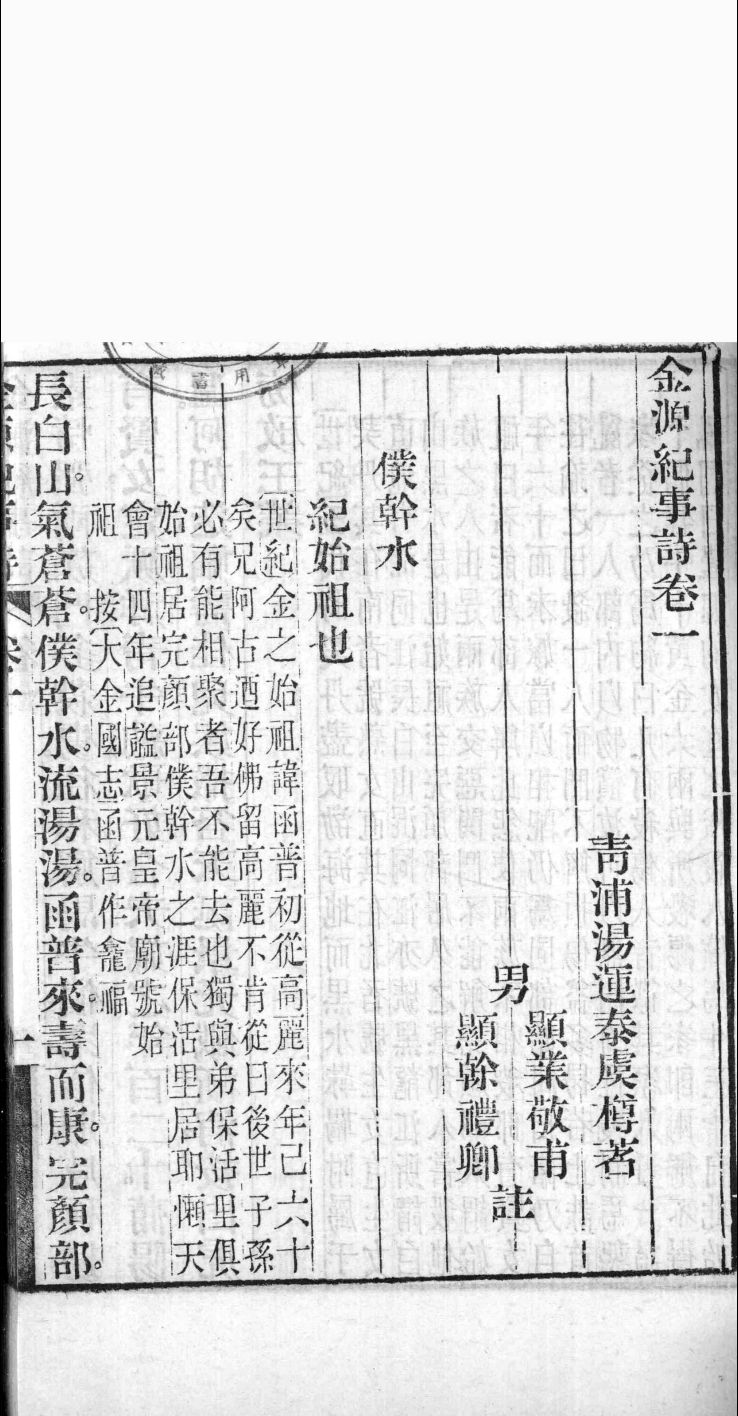 金源紀事詩卷一
青浦湯運泰虞樽著
男
顯業敬甫
顯榦禮卿
註
僕幹水
紀始祖也
世紀金之始祖諱函普初從高麗來年已六十
矣兄阿古迺好佛留高麗不肯從曰後世子孫
必有能相聚者吾不能去也獨與弟保活里俱
始祖居完顏部僕幹水之涯保活里居耶懶天
會十四年追謚景元皇帝廟號始
祖 按大金國志函普作龕福
長白山。氣蒼蒼。僕幹水。流湯湯。函普來。壽而康。完顏部。